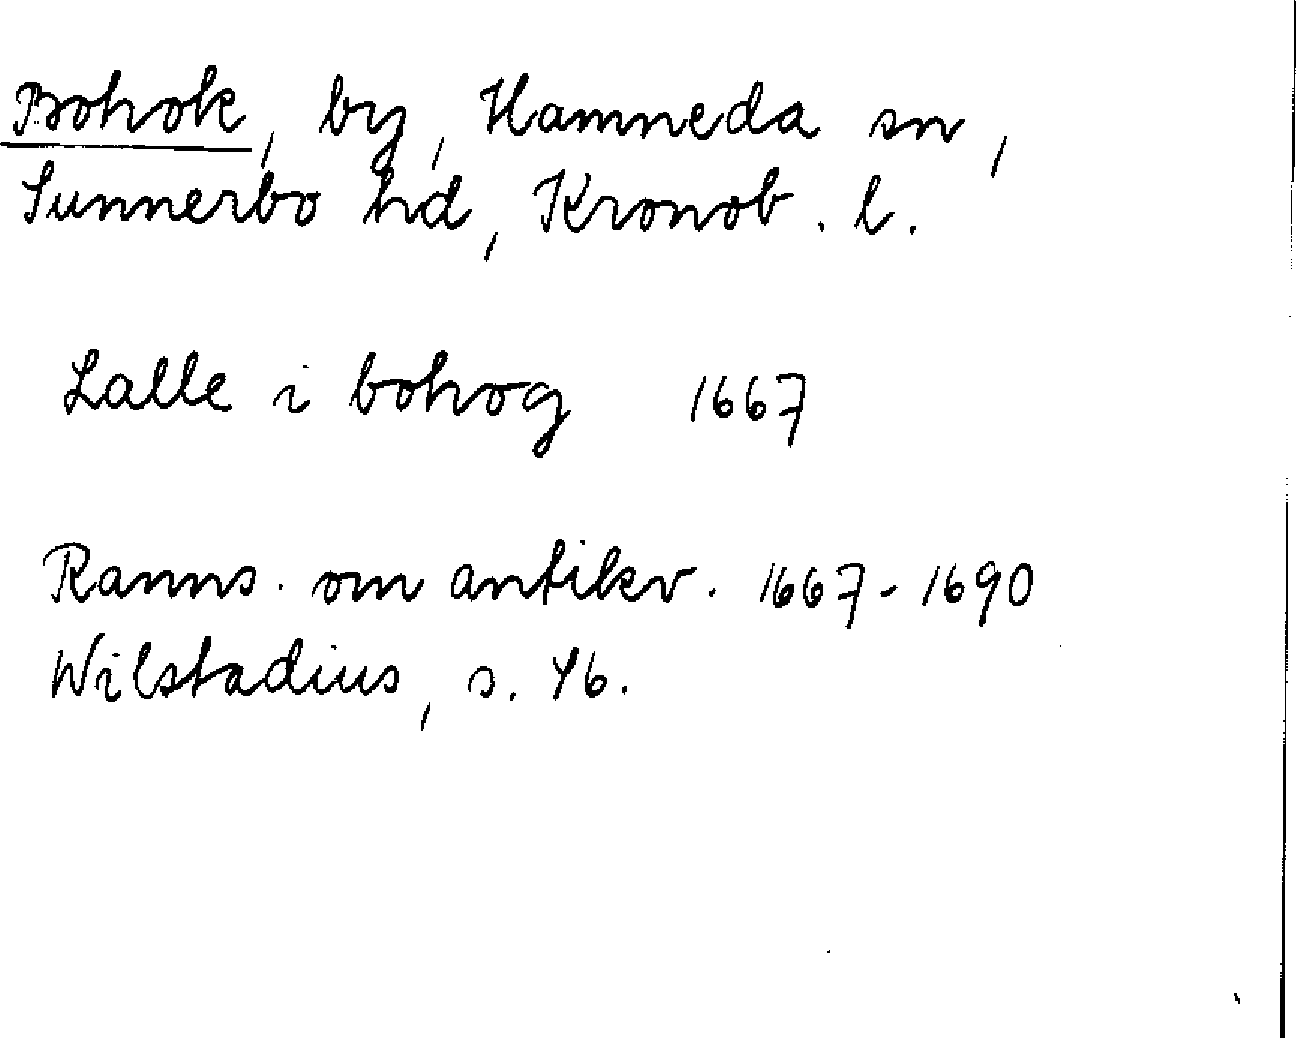 Bohok, by, Hamneda sn,
Sunnerbo hd, Kronob. l.
Lalle i bohog 1667
Ranns. om antikv. 1667-1690
Wilstadius, s. 46.